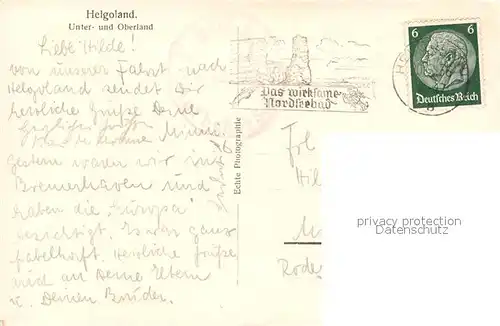 Helgoland.
Unter- und Oberland
Liebe Hilde!
von unserer Fahrt nach
Helgoland sendet dir
herzliche Grüße Deine
Minni.
Gestern waren wir in
Bremerhaven und
haben die "Europa"
besichtigt. Es war ganz
fabelhaft. Herzliche Grüße
auch an Deine Eltern
u. Deinen Bruder.
Echte Photographie
Das wirksame
Nordseebad
6 6
Deutsches Reich
Frl
Hil
Rode
privacy protection
Datenschutz